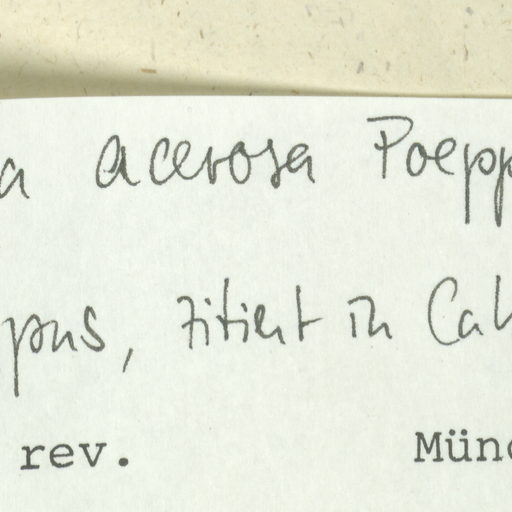 a acerosa Poepp
ypus, zitiert in Cal
rev. Münc